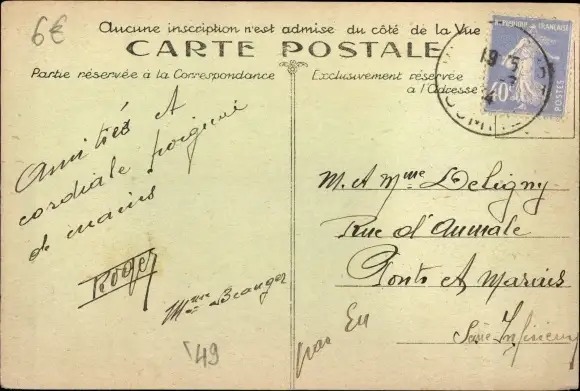 6€
Aucune inscription n'est admise du côté de la Vue
CARTE POSTALE
Partie réservée à la Correspondance
Exclusivement réservée
à l'Adresse
RÉPUBLIQUE FRANÇAISE
40c
POSTES
19 15
Amitiés et
cordiale poignée
de mains
Roger
Mme Beauger
'49
M. et Mme Deligny
Rue d'Aumale
Ponts et Marais
par Eu
Seine Inférieure